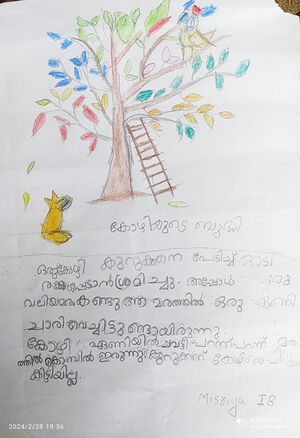 കോഴിയുടെ ബുദ്ധി
ഒരുകോഴി കുറുക്കനെ പേടിച്ച് ഓടി
രക്ഷപ്പെടാൻ ശ്രമിച്ചു. അപ്പോൾ ഒരു
വലിയമരം കണ്ടു ആ മരത്തിൽ ഒരു ഏണി
ചാരിവെച്ചിട്ടുണ്ടായിരുന്നു.
കോഴി ഏണിയിൽ ചവട്ടി പറന്ന്പറന്ന് മര
ത്തിൽ കൊമ്പിൽ ഇരുന്നു. കുറുക്കന് കോഴിയെ
കിട്ടിയില്ല.
Misriya IB
2024/2/28 19:36